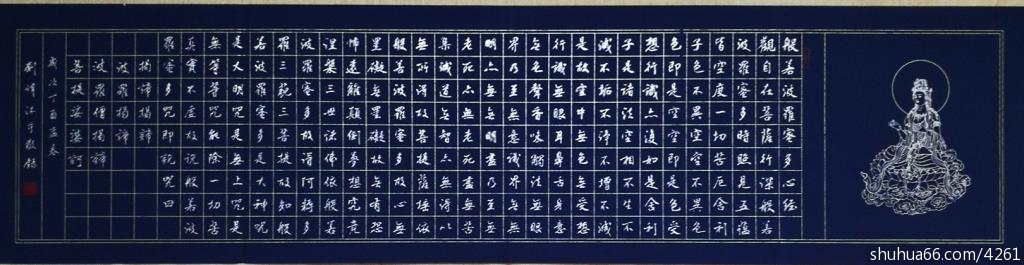 般若波羅蜜多心經
觀自在菩薩行深般若
波羅蜜多時照見五蘊
皆空度一切苦厄舍利
子色不異空空不異色
色即是空空即是色受
想行識亦復如是舍利
子是諸法空相不生不
滅不垢不淨不增不減
是故空中無色無受想
行識無眼耳鼻舌身意
無色聲香味觸法無眼
界乃至無意識界無無
明亦無無明盡乃至無
老死亦無老死盡無苦
集滅道無智亦無得以
無所得故菩提薩埵依
般若波羅蜜多故心無
罣礙無罣礙故無有恐
怖遠離顛倒夢想究竟
涅槃三世諸佛依般若
波羅蜜多故得阿耨多
羅三藐三菩提故知般
若波羅蜜多是大神咒
是大明咒是無上咒是
無等等咒能除一切苦
真實不虛故說般若波
羅蜜多咒即說咒曰
揭諦揭諦
波羅揭諦
波羅僧揭諦
菩提娑婆訶
歲次丁酉孟春
沐手敬錄
shuhua66.com/4261